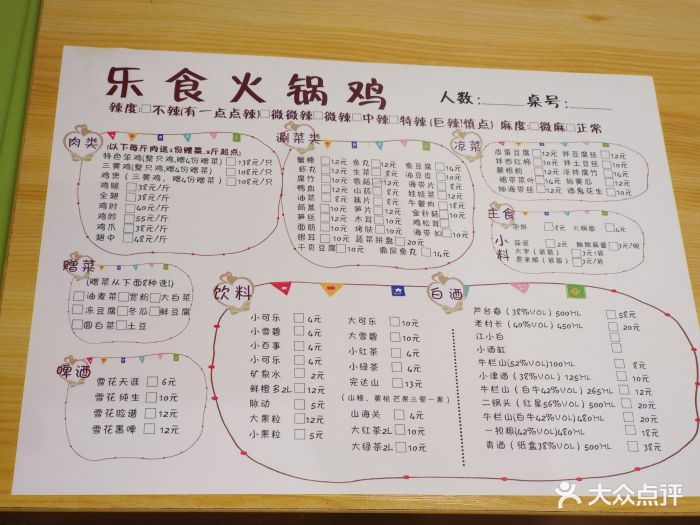 乐食火锅鸡
人数:____桌号:____
辣度:□不辣(有一点点辣)□微微辣□微辣□中辣□特辣(巨辣!慎点) 麻度:□微麻□正常
肉类
(以下每斤肉送1份赠菜,2斤起点)
特色笨鸡(整只鸡,赠4份赠菜)□138元/只
三黄鸡(整只鸡,赠4份赠菜)□108元/只
鸡煲(三黄鸡,赠4份赠菜)□108元/只
鸡腿□38元/斤
全翅□38元/斤
鸡肘□40元/斤
鸡胗□55元/斤
鸡爪□38元/斤
翅中□48元/斤
涮菜类
蟹棒□12元 鱼丸□12元 鱼豆腐□14元
虾丸□12元 生菜□8元 油豆皮□10元
腐竹□12元
鸭血□12元
油菜□8元 藕片□8元 娃娃菜□12元
茼蒿□10元 笋片□10元 午餐肉□18元
笋丝□12元 木耳□10元 金针菇□10元
面筋□10元 烤肤□10元 鸡松茸□10元
银耳□10元 蔬菜拼盘□20元 海带扣□10元
千页豆腐□10元 撒尿鱼丸□14元
凉菜
皮蛋豆腐□12元 拌豆腐丝□12元
拌西红柿□10元 拌土豆丝□10元
凉拌腐竹□12元
拍黄瓜□12元
酒鬼花生□10元
主食
火锅面□4元
小料
麻酱□3元/碗
赠菜
(赠菜从以下面8种选!)
□油麦菜□宽粉□大白菜
□冻豆腐□冬瓜□鲜豆腐
□圆白菜□土豆
啤酒
雪花天涯□6元
雪花纯生□10元
雪花脸谱□12元
雪花黑啤□12元
饮料
小可乐□4元 大可乐□10元
小雪碧□4元 大雪碧□10元
小百事□4元 小红茶□4元
小可乐□4元 小绿茶□4元
矿泉水□2元 完达山□13元
鲜橙多2L□12元 (山楂、黄桃芒果三掌一素)
脉动□5元 山海关□4元
大果粒□12元 大红茶2L□10元
小果粒□5元 大绿茶2L□10元
白酒
芦台春(38%VOL)500ML□58元
老村长(40%VOL)450ML□20元
江小白□
小酒缸□
牛栏山(52%VOL)100ML□8元
小津酒(38%VOL)125ML□10元
牛栏山(白牛42%VOL)265ML□12元
二锅头(红星56%VOL)500ML□20元
牛栏山(白牛42%VOL)480ML□20元
一担粮(42%VOL)480ML□18元
青酒(纸盒38%VOL)500ML□38元
大众点评